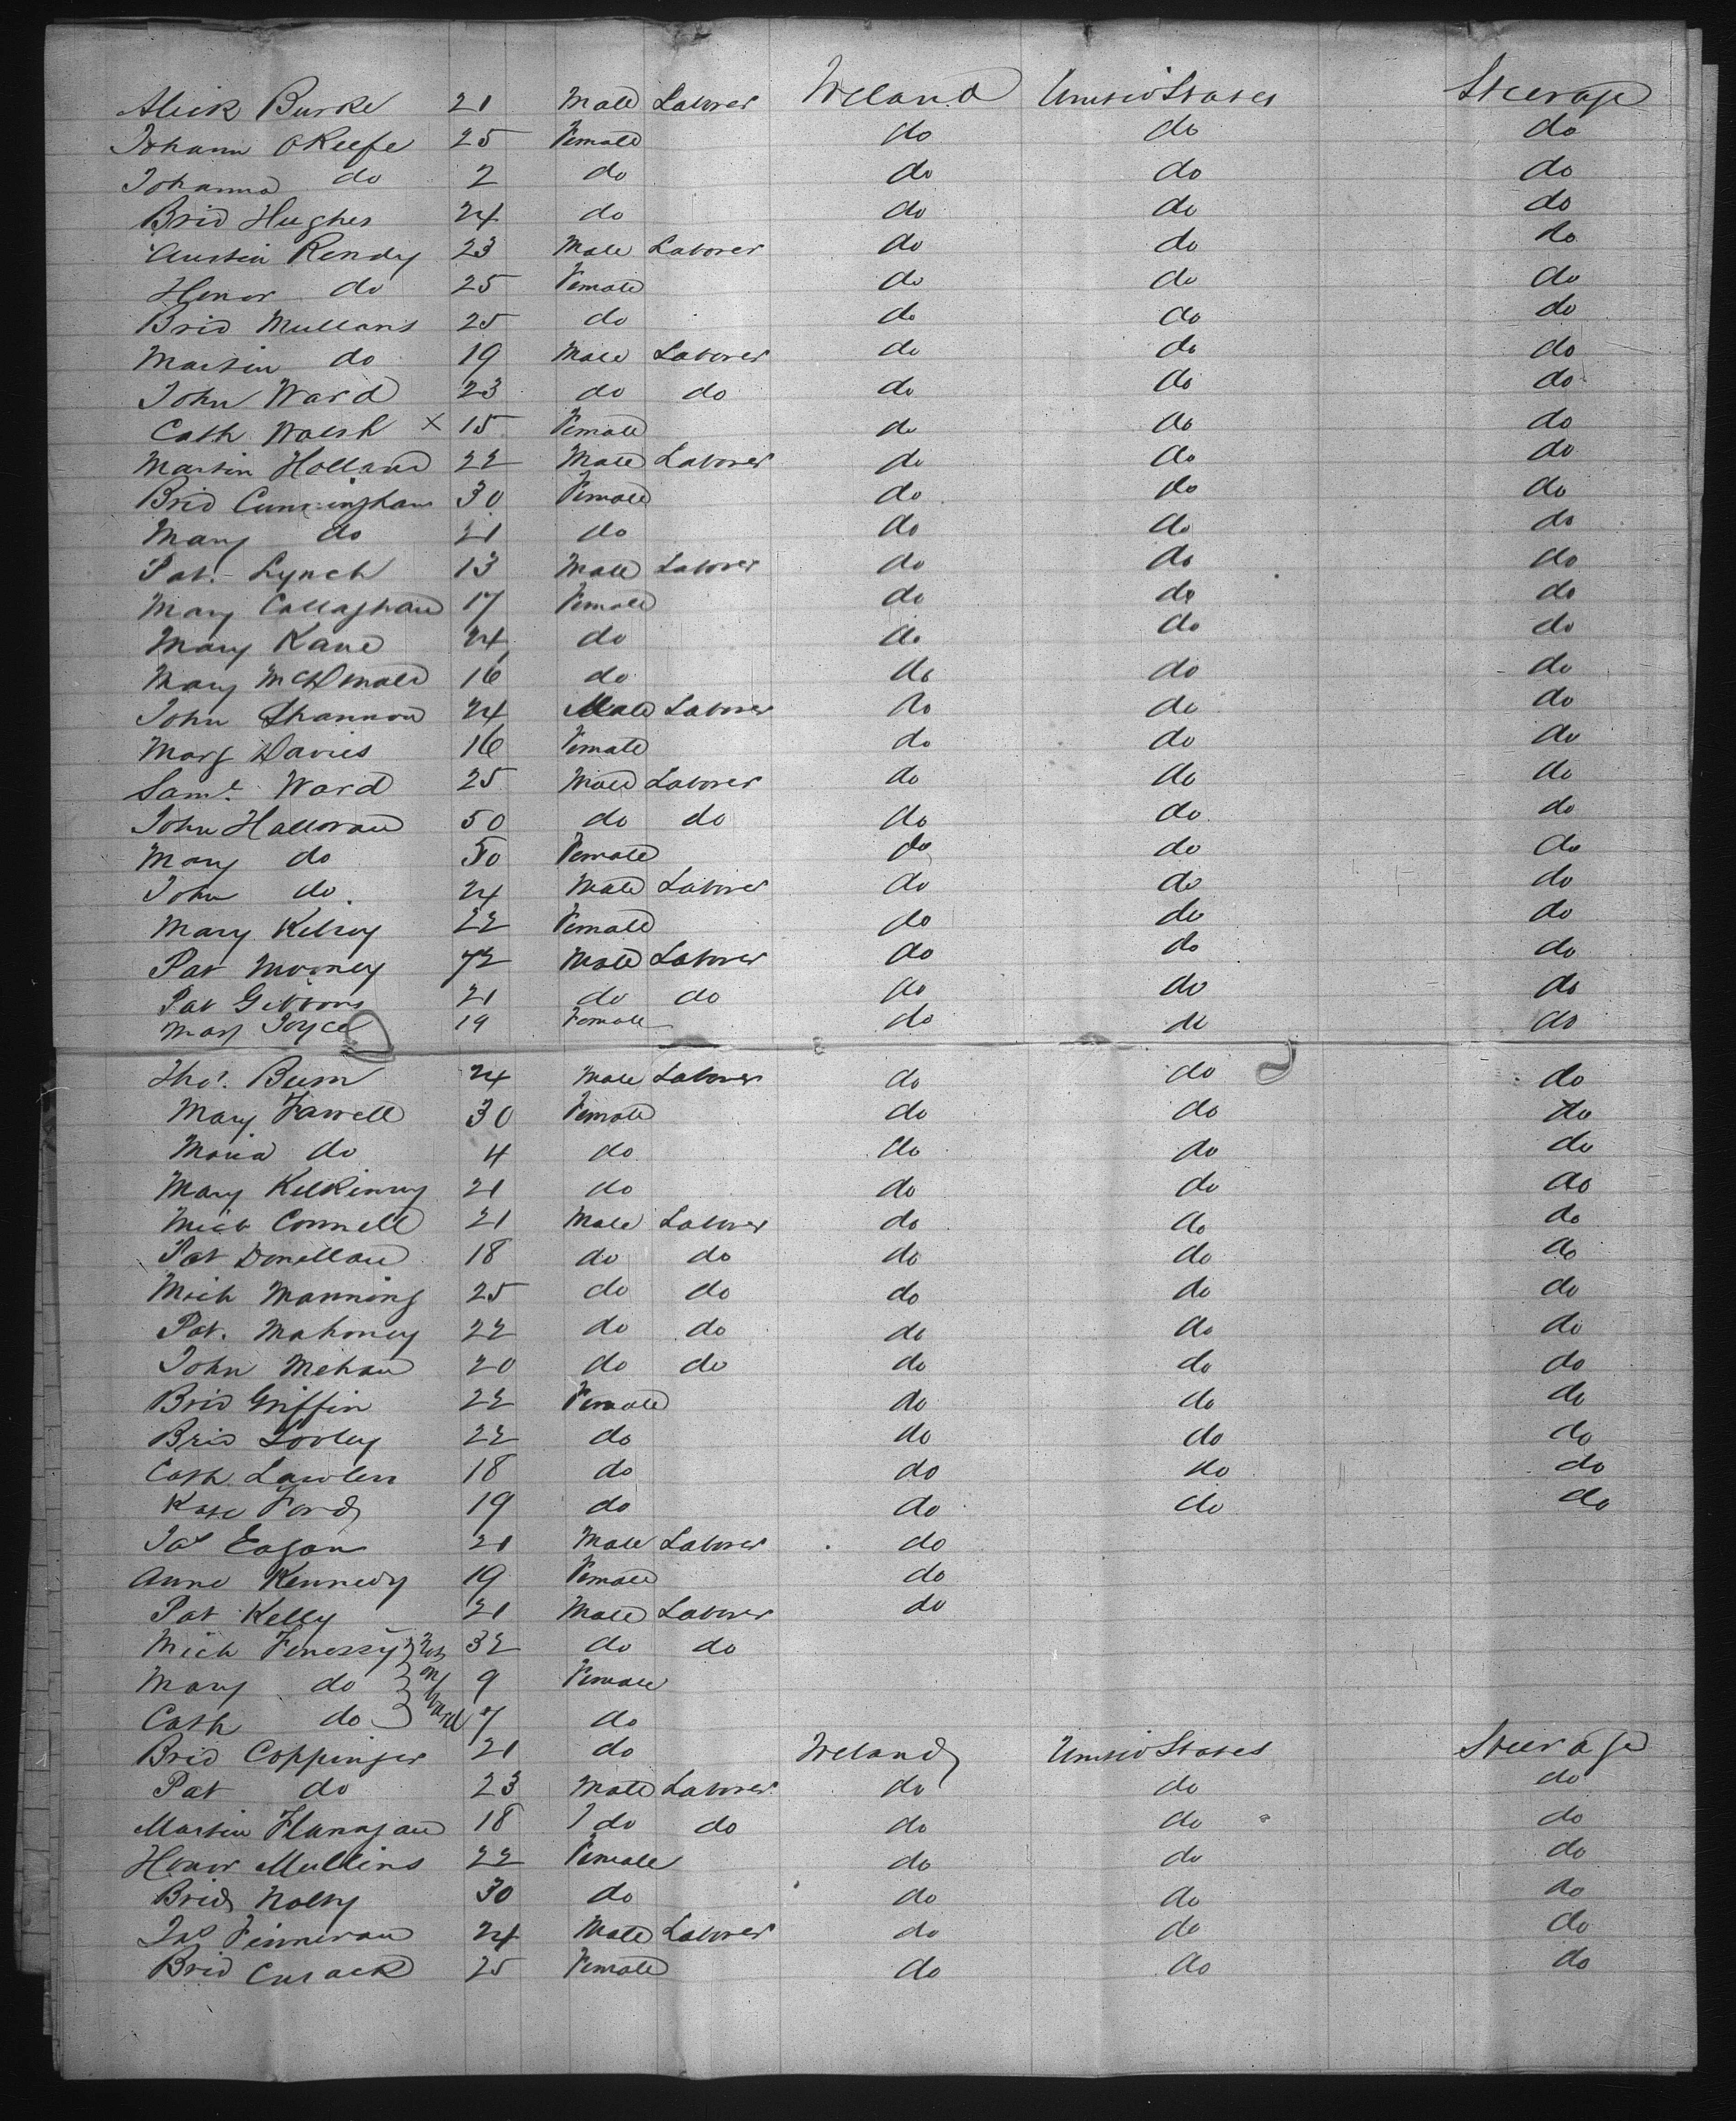 Mick Burke 21 Male Laborer Ireland United States Steerage
Johann OKeefe 25 Female do do do
Johanna do 2 do do do do
Brid Hughes 24 do do do do
Austin Kendy 23 Male Laborer do do do
Honor do 25 Female do do do
Brid Mullans 25 do do do do
Martin do 19 Male Laborer do do do
John Ward 23 do do do do do
Cath Walsh x 15 Female do do do
Martin Holland 22 Male Laborer do do do
Brid Cunningham 30 Female do do do
Mary do 21 do do do do
Pat. Lynch 13 Male Laborer do do do
Mary Callaghan 17 Female do do do
Mary Kane 24 do do do do
Mary McDonald 16 do do do do
John Shannon 24 Male Laborer do do do
Marg Davies 16 Female do do do
Saml. Ward 25 Male Laborer do do do
John Halloran 50 do do do do do
Mary do 50 Female do do do
John do. 24 Male Laborer do do do
Mary Kilroy 22 Female do do do
Pat Mooney 72 Male Laborer do do do
Pat Gibbons 21 do do do do do
Mary Joyce 19 Female do do do
Thos. Burn 24 Male Laborer do do do
Mary Farrell 30 Female do do do
Maria do 4 do do do do
Mary Kilkenny 21 do do do do
Mich Connell 21 Male Laborer do do do
Pat Donellan 18 do do do do do
Mich Manning 25 do do do do do
Pat. Mahoney 22 do do do do do
John Mehan 20 do do do do do
Brid Griffin 22 Female do do do
Brid 22 do do do do
Cath Lawlen 18 do do do do
Kate Ford 19 do do do do
Jas Eagan 21 Male Laborer do
Anne Kennedy 19 Female do
Pat Kelly 21 Male Laborer do
Mich Fenessy Not 32 do do
Mary do on 9 Female
Cath do board 7 do
Brid Coppinger 21 do Ireland United States Steerage
Pat do 23 Male Laborer do do do
Martin Flanagan 18 do do do do do
Honor Mullins 22 Female do do do
Brid 30 do do do do
Jas Finneran 24 Male Laborer do do do
Brid Cusack 25 Female do do do